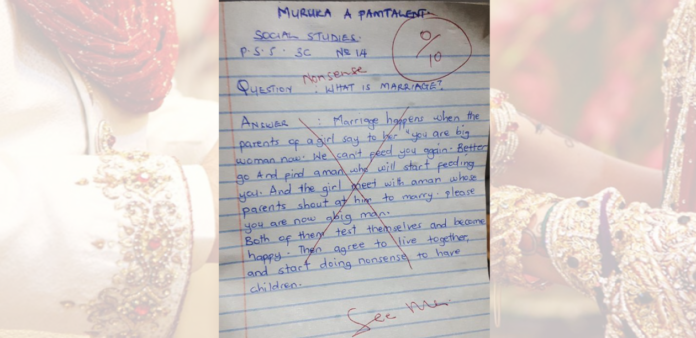 MURUKA A PAMTALENT.
SOCIAL STUDIES.
P.S.S. 3C No 14
0/10
Nonsense
QUESTION : WHAT IS MARRIAGE?
ANSWER : Marriage happens when the
parents of a girl say to her "you are big
woman now. We can't feed you again. Better
go And find aman who will start feeding
you. And the girl meet with aman whose
parents shout at him to marry. please
you are now abig man.
Both of them test themselves and become
happy. Then agree to live together,
and start doing nonsense to have
children.
See Me